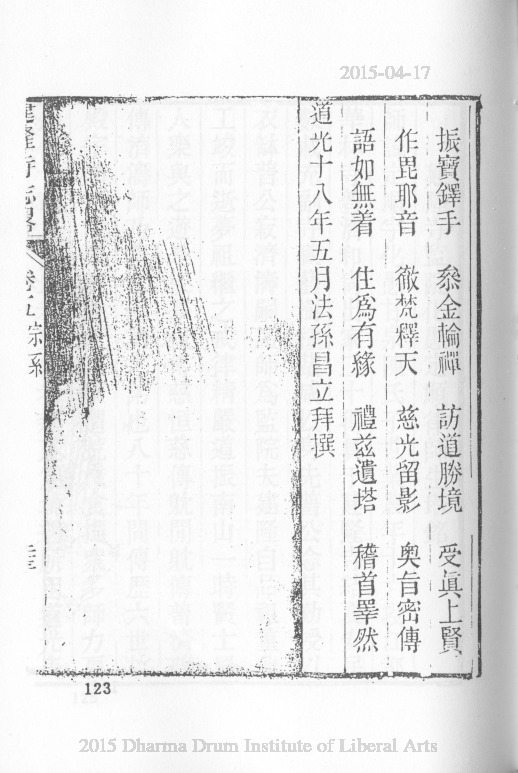 2015-04-17
振寶鐸手　叅金輪禪　訪道勝境　受眞上賢
作毘耶音　徹梵釋天　慈光留影　奧旨密傳
語如無着　住爲有緣　禮茲遺塔　稽首睪然
道光十八年五月法孫昌立拜撰
隆寺志畧　卷五宗系
123
2015 Dharma Drum Institute of Liberal Arts